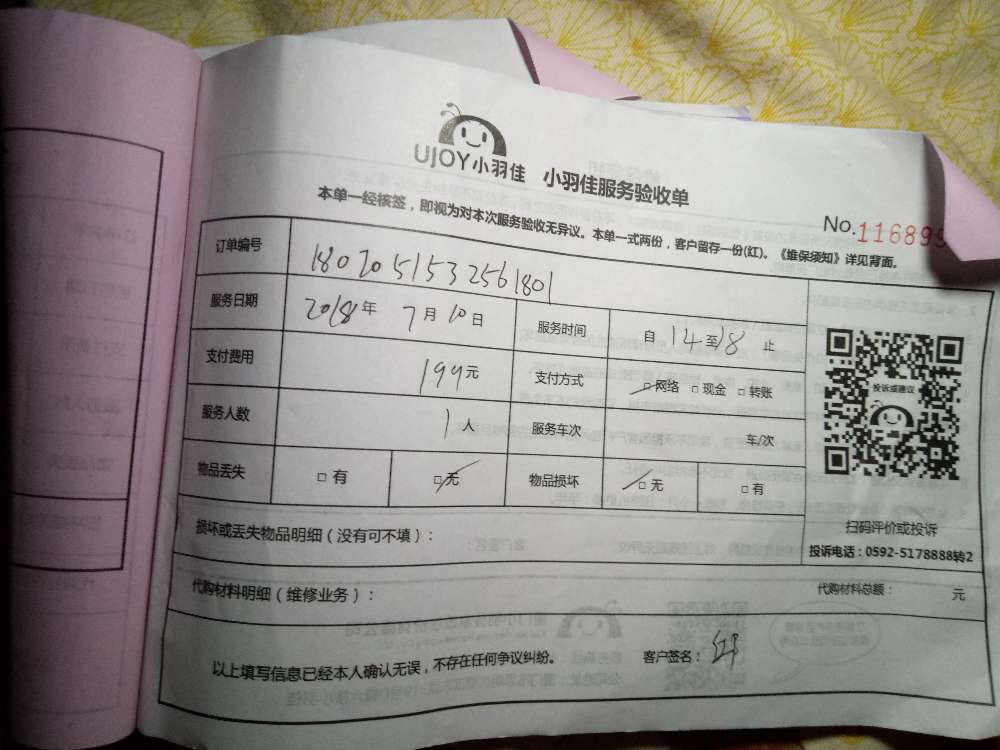 UJOY小羽佳 小羽佳服务验收单
本单一经核签，即视为对本次服务验收无异议。本单一式两份，客户留存一份(红)。《维保须知》详见背面。
No.116899
订单编号 1807051532561801
服务日期 2018年 7月 10日 服务时间 自 14 至 18 止
支付费用 199元 支付方式 □网络 □现金 □转账
服务人数 1人 服务车次 车/次
物品丢失 □有 □无 物品损坏 □无 □有
投诉或建议
扫码评价或投诉
投诉电话：0592-5178888转2
损坏或丢失物品明细（没有可不填）：
代购材料明细（维修业务）： 代购材料总额： 元
以上填写信息已经本人确认无误，不存在任何争议纠纷。 客户签名：